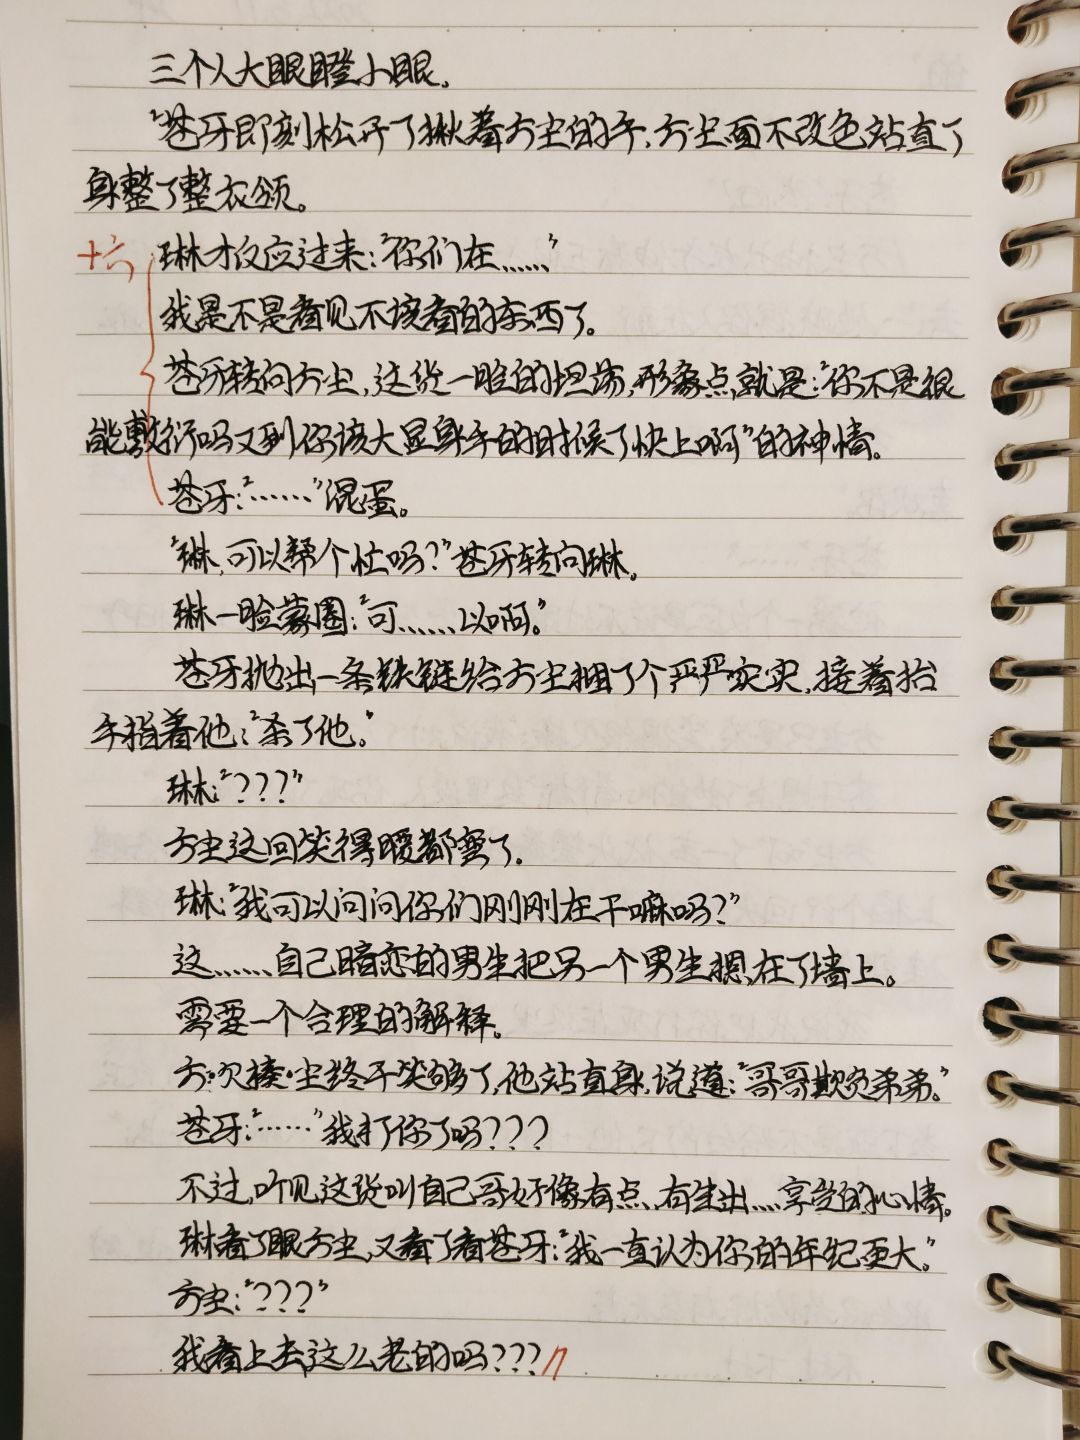 三个人大眼瞪小眼。
苍牙即刻松开了揪着方尘的手，方尘面不改色站直了
身整了整衣领。
十六 琳才反应过来：“你们在……”
我是不是看见不该看的东西了。
苍牙转向方尘，这货一脸的坦荡，形象点就是：“你不是很
能敷衍吗又到你该大显身手的时候了快上啊”的神情。
苍牙：“……”混蛋。
“琳，可以帮个忙吗？”苍牙转向琳。
琳一脸蒙圈：“可……以啊。”
苍牙抛出一条铁链给方尘捆了个严严实实，接着抬
手指着他：“杀了他。”
琳：“？？？”
方尘这回笑得嗳都要了。
琳：“我可以问问你们刚刚在干嘛吗？”
这……自己暗恋的男生把另一个男生摁在了墙上。
需要一个合理的解释。
方·欠揍·尘终于笑够了，他站直身，说道：“哥哥欺负弟弟。”
苍牙：“……”我打你了吗？？？
不过，听见这货叫自己哥好像有点，有生出……享受的心情。
琳看了眼方尘，又看了看苍牙：“我一直认为你的年纪更大。”
方尘：“？？？”
我看上去这么老的吗？？？